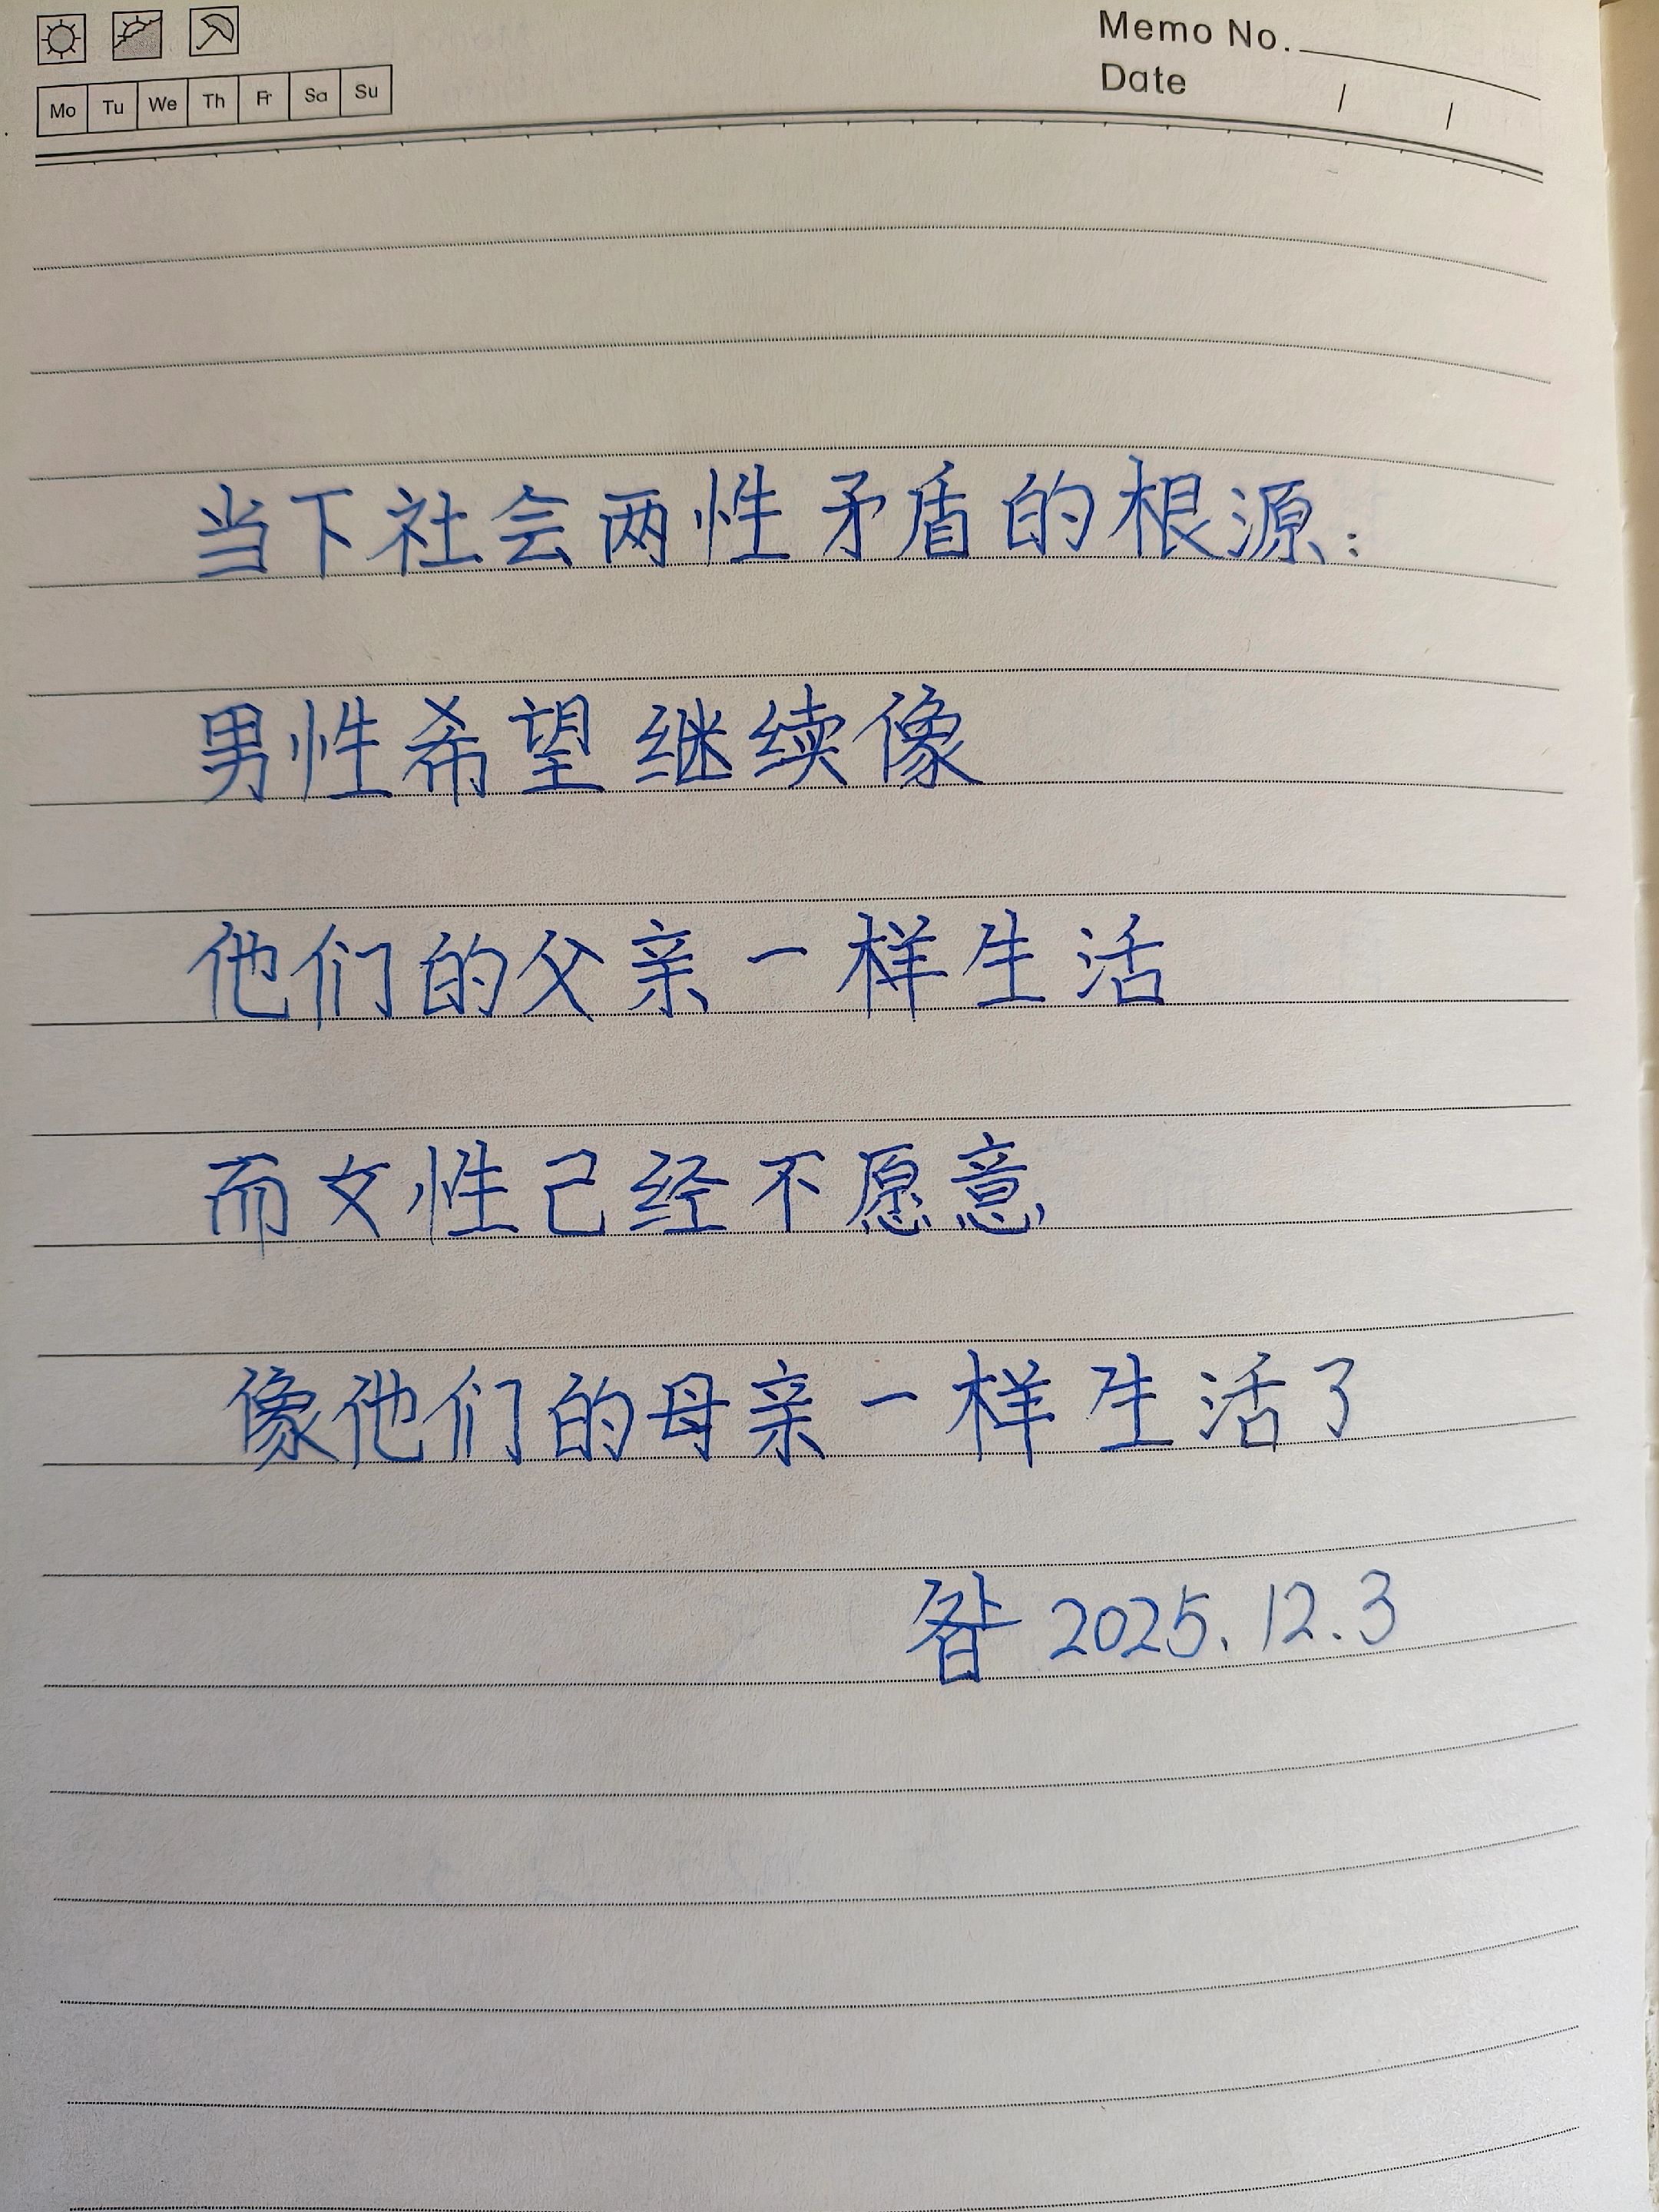 Memo No.
Date / /
Mo Tu We Th Fr Sa Su
当下社会两性矛盾的根源:
男性希望继续像
他们的父亲一样生活
而女性己经不愿意
像他们的母亲一样生活了
2025.12.3